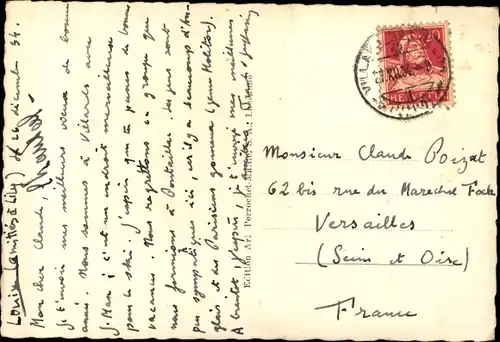 Louis (amitiés à Lily) le 26 décembre 34.
Mon cher Claude,
je t'envoie mes meilleurs vœux de bonne
année. Nous sommes à Villars avec
J. Mar; c'est un endroit merveilleux
pour le ski. J'espère que tu passes de bonnes
vacances. Nous regrettons ce groupe que
nous formions à Pontaillac. Les gens sont
peu sympathiques ici, car il y a beaucoup d'An-
glais et des Parisiens gommeux (genre Molitor).
A bientôt, j'espère, je t'envoie mes meilleurs
Edition Art. Perrochet
VILLARS
HELVETIA
20
Monsieur Claude Poizat
62 bis rue du Marechal Foch
Versailles
(Seine et Oise)
France